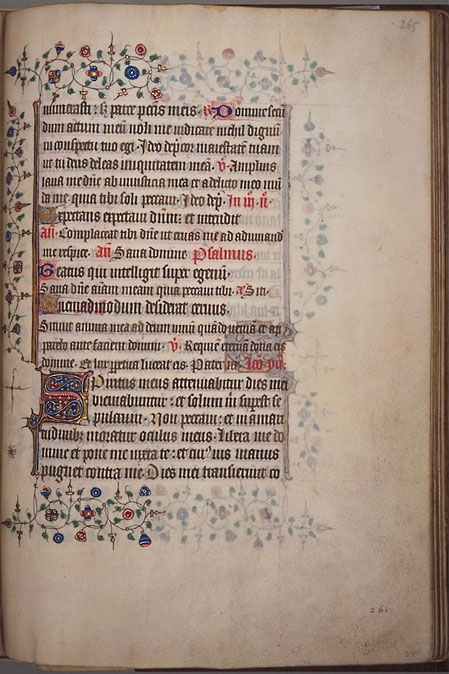 265
iniuncasti: & parce peccis meis. R Domine secu
dum actum meu noli me iudicare nichil dignu
in conspectu tuo egi. Ideo depcor maiestatem tuam
ut tu deus deleas iniquitatem meam. V. Amplius
laua me dne ab iniusticia mea et a delicto meo mu
da me quia tibi soli peccaui. Ideo dep. In iii. n.
Expectans expectaui dnm: et intendit
an. Complaceat tibi dne ut eruas me ad adiuuand
me respice. an Sana domine Psalmus.
Beatus qui intelligit super egenu
Sana dne aiam meam quia peccaui tibi. a Siti.
Quemadmodum desiderat ceruus.
Sitiuit anima mea ad deum uiuu quado ueniam et ap
parebo ante faciem domini. V. Requie eterna dona eis
domine. Et lux perpetua luceat eis. Pater nr. Leo vii.
Spiritus meus attenuabitur dies mei
breuiabuntur: et solum m superest se
pulcrum. Non peccaui: et in amari
tudinibus moratur oculus meus. Libera me do
mine et pone me iuxta te: et cuiusuis manus
pugnet contra me. Dies mei transierunt co
261